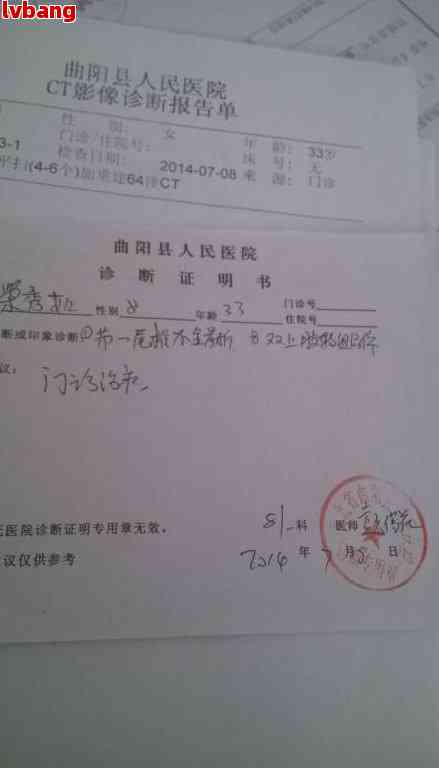 lvbang
曲阳县人民医院
CT影像诊断报告单
性 别: 女 年 龄: 33岁
3-1 门诊/住院号: 床 号: 无
检查日期: 2014-07-08 来 源: 门诊
平扫(4-6个)加重建64排CT
曲阳县人民医院
诊断证明书
性别 年龄 33 门诊号
住院号
断或印象诊断 ① 第一尾椎不全骨折 ② 双上
议: 门诊治疗
医院诊断证明专用章无效。 科 医师
议仅供参考 2014 年 7 月 8 日